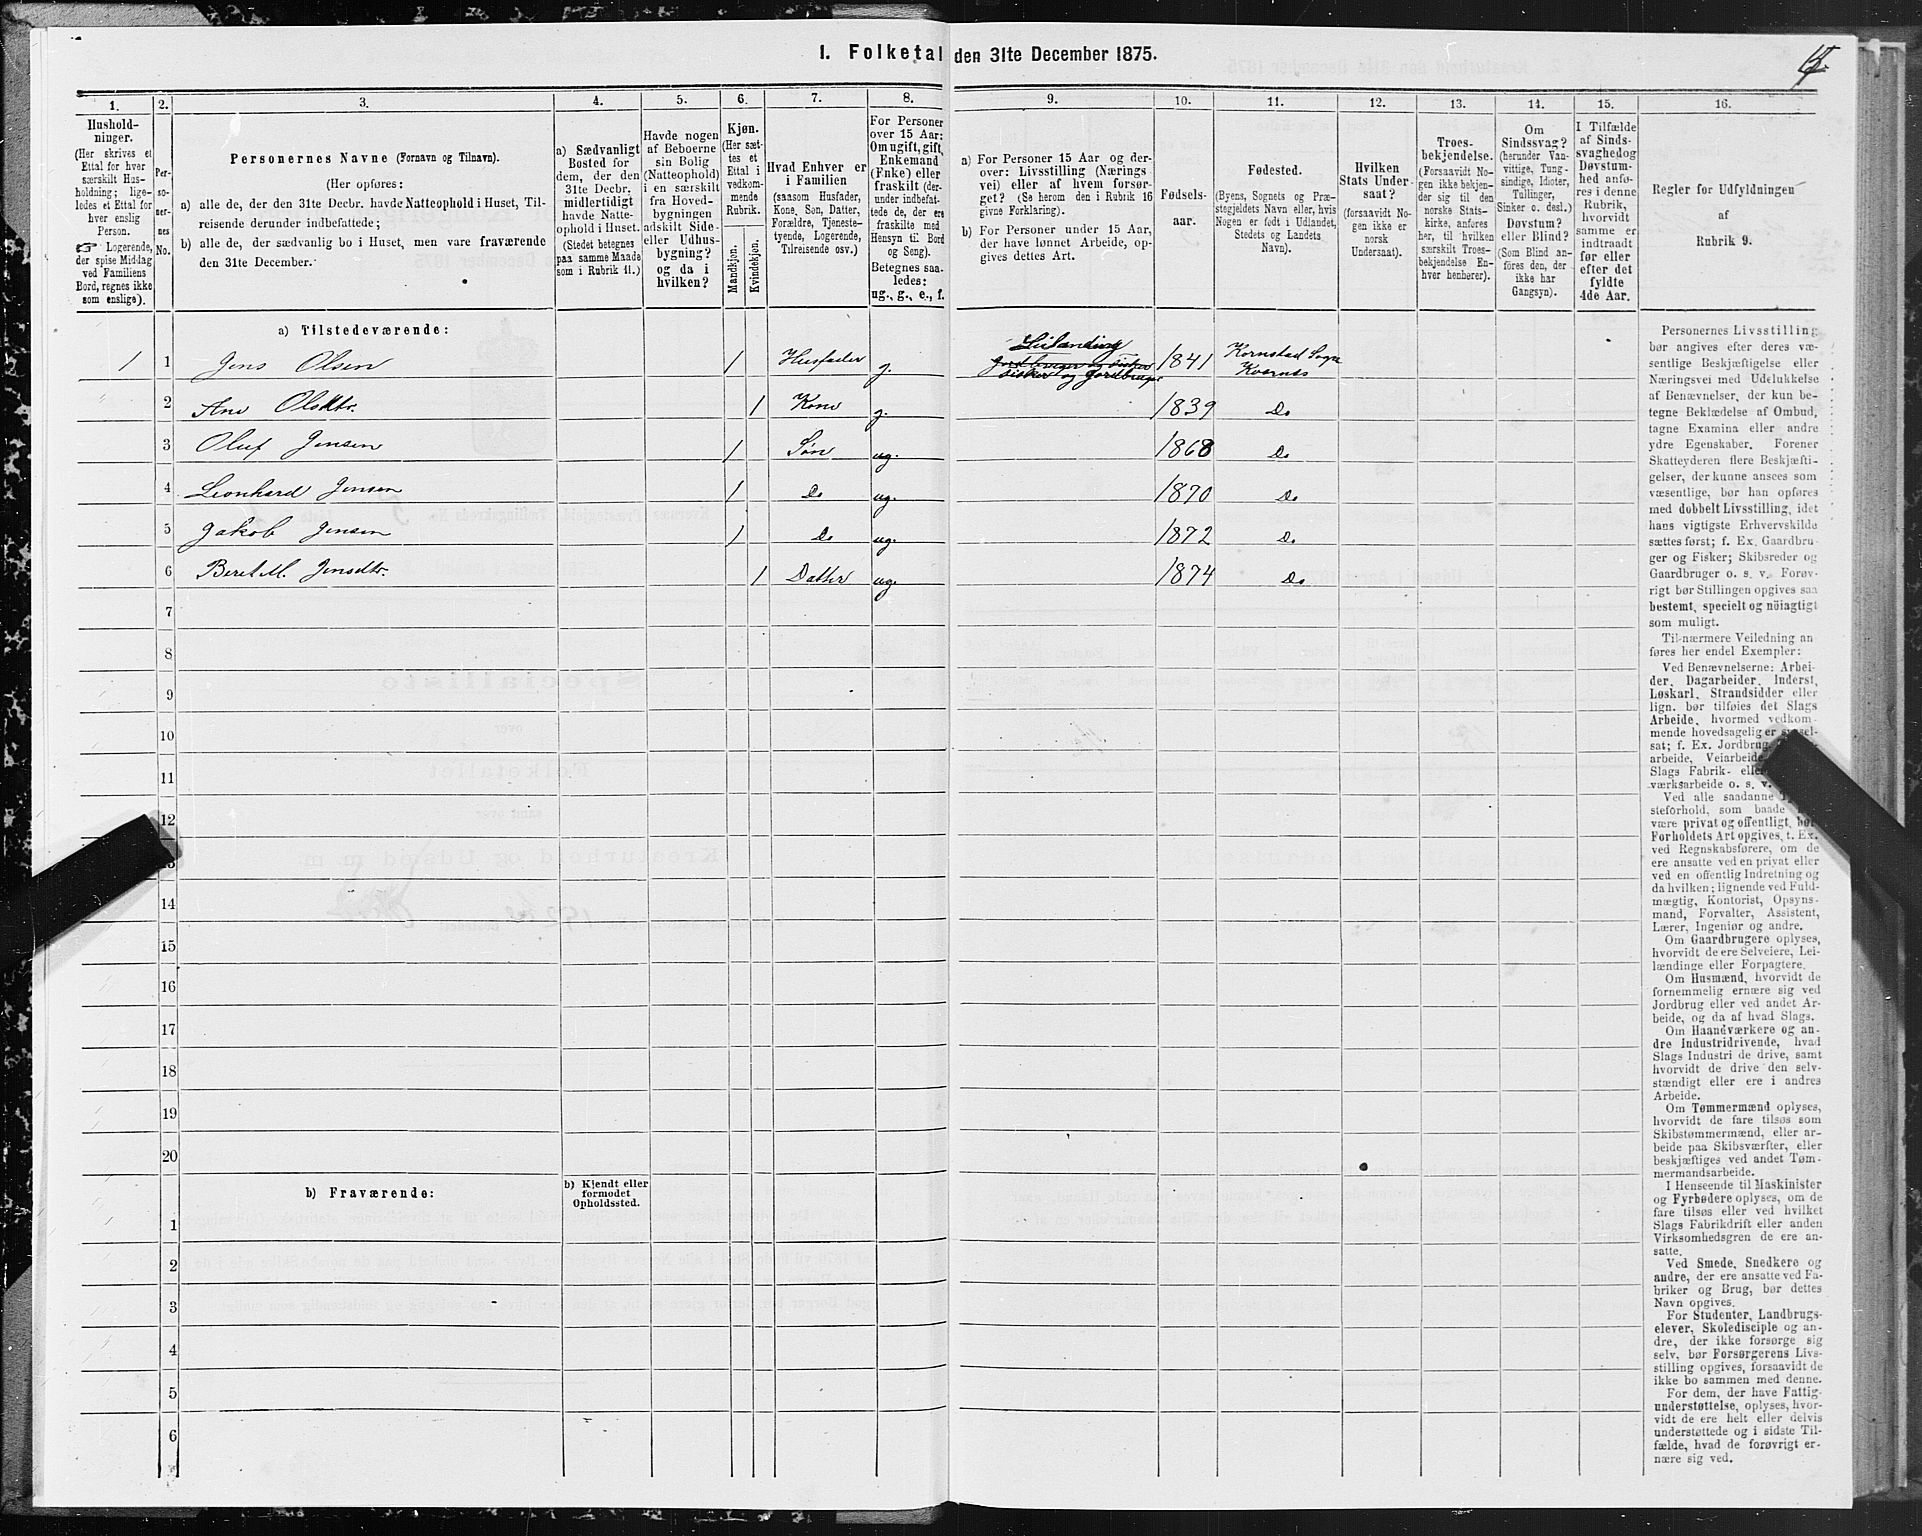 I. Folketal den 31te December 1875.
1. 2. 3. 4. 5. 6. 7. 8. 9. 10. 11. 12. 13. 14. 15. 16.
Hushold-
ninger.
(Her skrives et
Ettal for hver
særskilt Hus-
holdning; lige-
ledes et Ettal for
hver enslig
Person.
Logerende,
der spise Middag
ved Familiens
Bord, regnes ikke
som enslige).
Per-
so-
ner-
nes
No.
Personernes Navne (Fornavn og Tilnavn).
(Her opføres:
a) alle de, der den 31te Decbr. havde Natteophold i Huset, Til-
reisende derunder indbefattede;
b) alle de, der sædvanlig bo i Huset, men vare fraværende
den 31te December.
a) Sædvanligt
Bosted for
dem, der den
31te Decbr.
midlertidigt
havde Natte-
ophold i Huset.
(Stedet betegnes
paa samme Maade
som i Rubrik 11.)
Havde nogen
af Beboerne
sin Bolig
(Natteophold)
i en særskilt
fra Hoved-
bygningen
adskilt Side-
eller Udhus-
bygning?
og da i
hvilken?
Kjøn.
(Her sæt-
tes et
Ettal i
vedkom-
mende
Rubrik.
Mandkjøn.
Kvindekjøn.
Hvad Enhver er
i Familien
(saasom Husfader,
Kone, Søn, Datter,
Forældre, Tjeneste-
tyende, Logerende,
Tilreisende osv.)
For Personer
over 15 Aar:
Om ugift, gift,
Enkemand
(Enke) eller
fraskilt (der-
under indbefat-
tede de, der ere
fraskilte med
Hensyn til Bord
og Seng).
Betegnes saa-
ledes:
ug., g., e., f.
a) For Personer 15 Aar og der-
over: Livsstilling (Nærings
vei) eller af hvem forsør-
get? (Se herom den i Rubrik 16
givne Forklaring).
b) For Personer under 15 Aar,
der have lønnet Arbeide, op-
gives dettes Art.
Fødsels-
aar.
Fødested.
(Byens, Sognets og Præ-
stegjeldets Navn eller, hvis
Nogen er født i Udlandet,
Stedets og Landets
Navn).
Hvilken
Stats Under-
saat?
(forsaavidt No-
gen ikke er
norsk
Undersaat).
Troes-
bekjendelse.
(Forsaavidt No-
gen ikke bekjen-
der sig til den
norske Stats-
kirke, anføres
her, til hvilken
særskilt Troes-
bekjendelse En-
hver henhører).
Om
Sindssvag?
(herunder Van-
vittige, Tung-
sindige, Idioter,
Tullinger,
Sinker o. desl.)
Døvstum?
eller Blind?
(Som Blind an-
føres den, der
ikke har
Gangsyn).
I Tilfælde
af Sinds-
svaghed og
Døvstum-
hed anfø-
res i denne
Rubrik,
hvorvidt
samme er
indtraadt
før eller
efter det
fyldte
4de Aar.
Regler for Udfyldningen
af
Rubrik 9.
a) Tilstedeværende:
Leilending
1 1 Jens Olsen 1 Husfader g. Fisker og Gardbruger 1841 Kornstad Sogn
Kvernes
2 Ane Olsdtr. 1 Kone g. 1839 Do
3 Oluf Jensen 1 Søn ug. 1868 Do
4 Leonhard Jensen 1 Do ug. 1870 Do
5 Jakob Jensen 1 Do ug. 1872 Do
6 Beret M. Jensdtr. 1 Datter ug. 1874 Do
7
8
9
10
11
12
13
14
15
16
17
18
19
20
b) Fraværende:
b) Kjendt eller
formodet
Opholdssted.
1
2
3
4
5
6
Personernes Livsstilling
bør angives efter deres væ-
sentlige Beskjæftigelse eller
Næringsvei med Udelukkelse
af Benævnelser, der kun be-
tegne Beklædelse af Ombud,
tagne Examina eller andre
ydre Egenskaber. Forener
Skatteyderen flere Beskjæfti-
gelser, der kunne ansees som
væsentlige, bør han opføres
med dobbelt Livsstilling, idet
hans vigtigste Erhvervskilde
sættes først; f. Ex. Gaardbru-
ger og Fisker; Skibsreder og
Gaardbruger o. s. v. Forøv-
rigt bør Stillingen opgives saa
bestemt, specielt og nöiagtigt
som muligt.
Til nærmere Veiledning an
føres her endel Exempler:
Ved Benævnelserne: Arbei-
der, Dagarbeider, Inderst,
Løskarl, Strandsidder eller
lign. bør tilføies det Slags
Arbeide, hvormed vedkom-
mende hovedsagelig er syssel-
sat; f. Ex. Jordbrug
arbeide, Veiarbeide
Slags Fabrik- eller
værksarbeide o. s. v.
Ved alle saadanne
steforhold, som baade
være privat og offentligt, bør
Forholdets Art opgives, t. Ex.
ved Regnskabsførere, om de
ere ansatte ved en privat eller
ved en offentlig Indretning og
da hvilken; lignende ved Fuld-
mægtig, Kontorist, Opsyns-
mand, Forvalter, Assistent,
Lærer, Ingeniør og andre.
Om Gaardbrugere oplyses,
hvorvidt de ere Selveiere, Lei-
lændinge eller Forpagtere.
Om Husmænd, hvorvidt de
fornemmelig ernære sig ved
Jordbrug eller ved andet Ar-
beide, og da af hvad Slags.
Om Haandværkere og an-
dre Industridrivende, hvad
Slags Industri de drive, samt
hvorvidt de drive den selv-
stændigt eller ere i andres
Arbeide.
Om Tømmermænd oplyses,
hvorvidt de fare tilsøs som
Skibstømmermænd, eller ar-
beide paa Skibsværfter, eller
beskjæftiges ved andet Tøm-
mermandsarbeide.
I Henseende til Maskinister
og Fyrbødere oplyses, om de
fare tilsøs eller ved hvilket
Slags Fabrikdrift eller anden
Virksomhedsgren de ere an-
satte.
Ved Smede, Snedkere og
andre, der ere ansatte ved Fa-
briker og Brug, bør dettes
Navn opgives.
For Studenter, Landbrugs-
elever, Skoledisciple og an-
dre, der ikke forsørge sig
selv, bør Forsørgerens Livs-
stilling opgives, forsaavidt de
ikke bo sammen med denne.
For dem, der have Fattig-
understøttelse, oplyses, hvor-
vidt de ere helt eller delvis
understøttede og i sidste Til-
fælde, hvad de forøvrigt er-
nære sig ved.